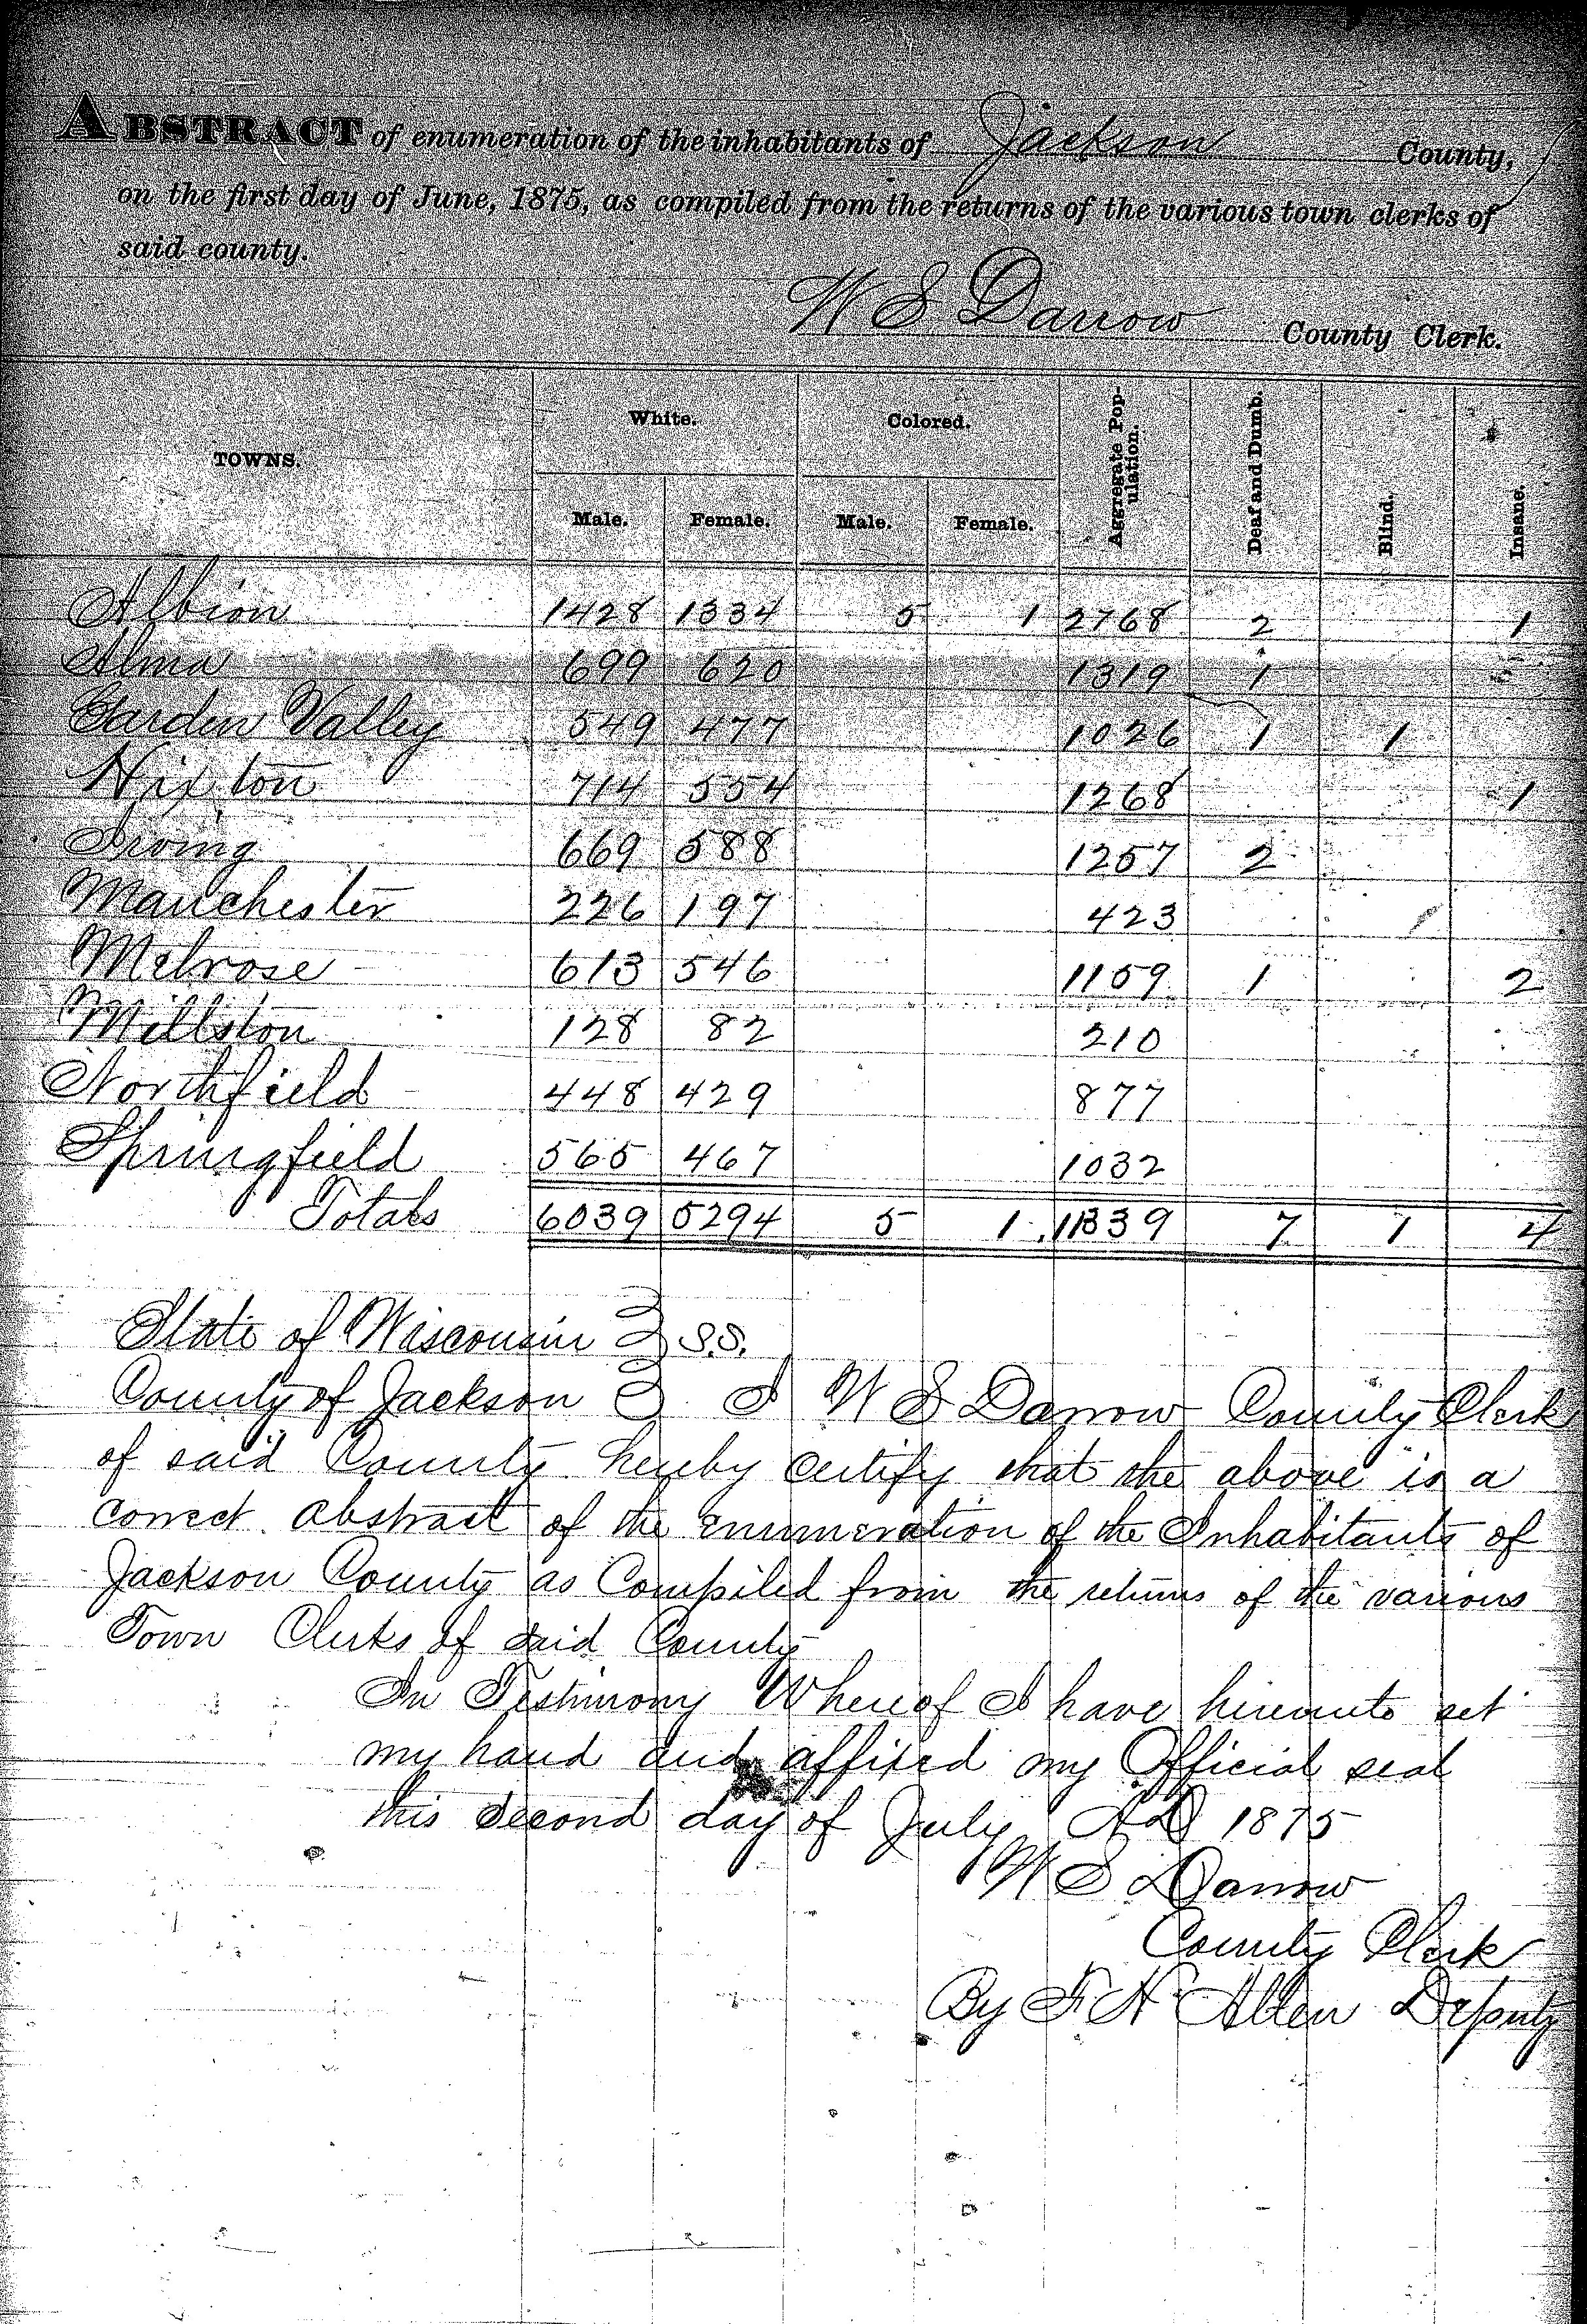 ABSTRACT of enumeration of the inhabitants of Jackson County,
on the first day of June, 1875, as compiled from the returns of the various town clerks of
said county.
W S Darrow County Clerk.
TOWNS. White. Colored. Aggregate Population. Deaf and Dumb. Blind. Insane.
Male. Female. Male. Female.
Albion 1428 1334 5 1 2768 2 1
Alma 699 620 1319 1
Garden Valley 549 477 1026 1 1
Hixton 714 554 1268 1
Irving 669 588 1257 2
Manchester 226 197 423
Melrose 613 546 1159 1 2
Millston 128 82 210
Northfield 448 429 877
Springfield 565 467 1032
Totals 6039 5294 5 1 11339 7 1 4
State of Wisconsin } S.S.
County of Jackson } I W S Darrow County Clerk
of said County hereby certify that the above is a
correct abstract of the enumeration of the Inhabitants of
Jackson County as Compiled from the returns of the various
Town Clerks of said County
In Testimony Whereof I have hereunto set
my hand and affixed my Official seal
this second day of July AD 1875
W S Darrow
County Clerk
By F. H. Allen Deputy